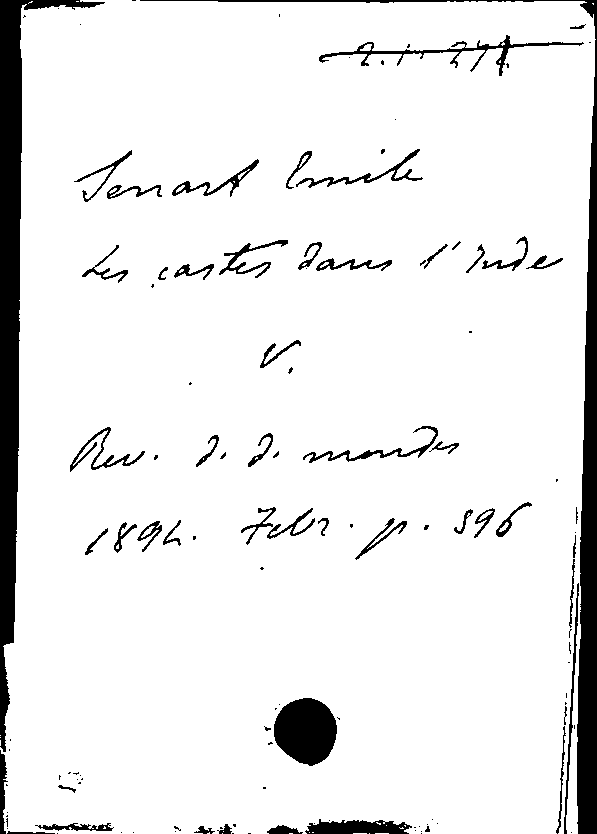 Senart Emile
Les castes dans l'Inde
V.
Rev. d. d. mondes
1894. Febr. p. 596